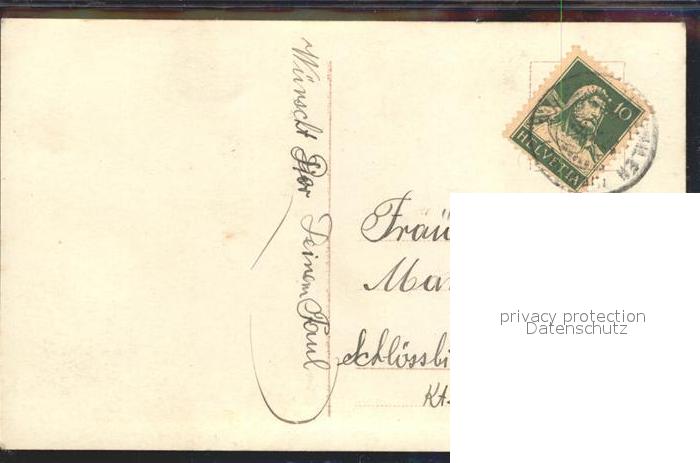 Wünscht Dir Deinem Paul
10
HELVETIA
Fräu
Ma
Schlössli
Kt.
privacy protection
Datenschutz